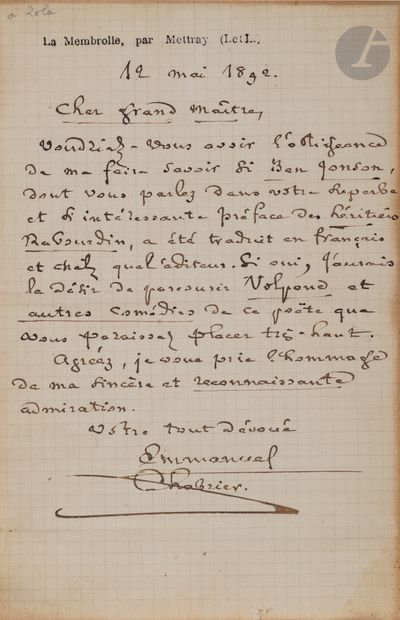 à Zola
La Membrolle, par Mettray (I.et L.)
12 mai 1892.
Cher grand Maître,
Voudriez-vous avoir l'obligeance
de me faire savoir si Ben Jonson,
dont vous parlez dans votre superbe
et si intéressante préface des héritiers
Rabourdin, a été traduit en français
et chez quel éditeur. Si oui, j'aurais
le désir de parcourir Volpone et
autres comédies de ce poëte que
vous paraissez placer très-haut.
Agréez, je vous prie l'hommage
de ma sincère et reconnaissante
admiration.
Votre tout dévoué
Emmanuel
Chabrier.